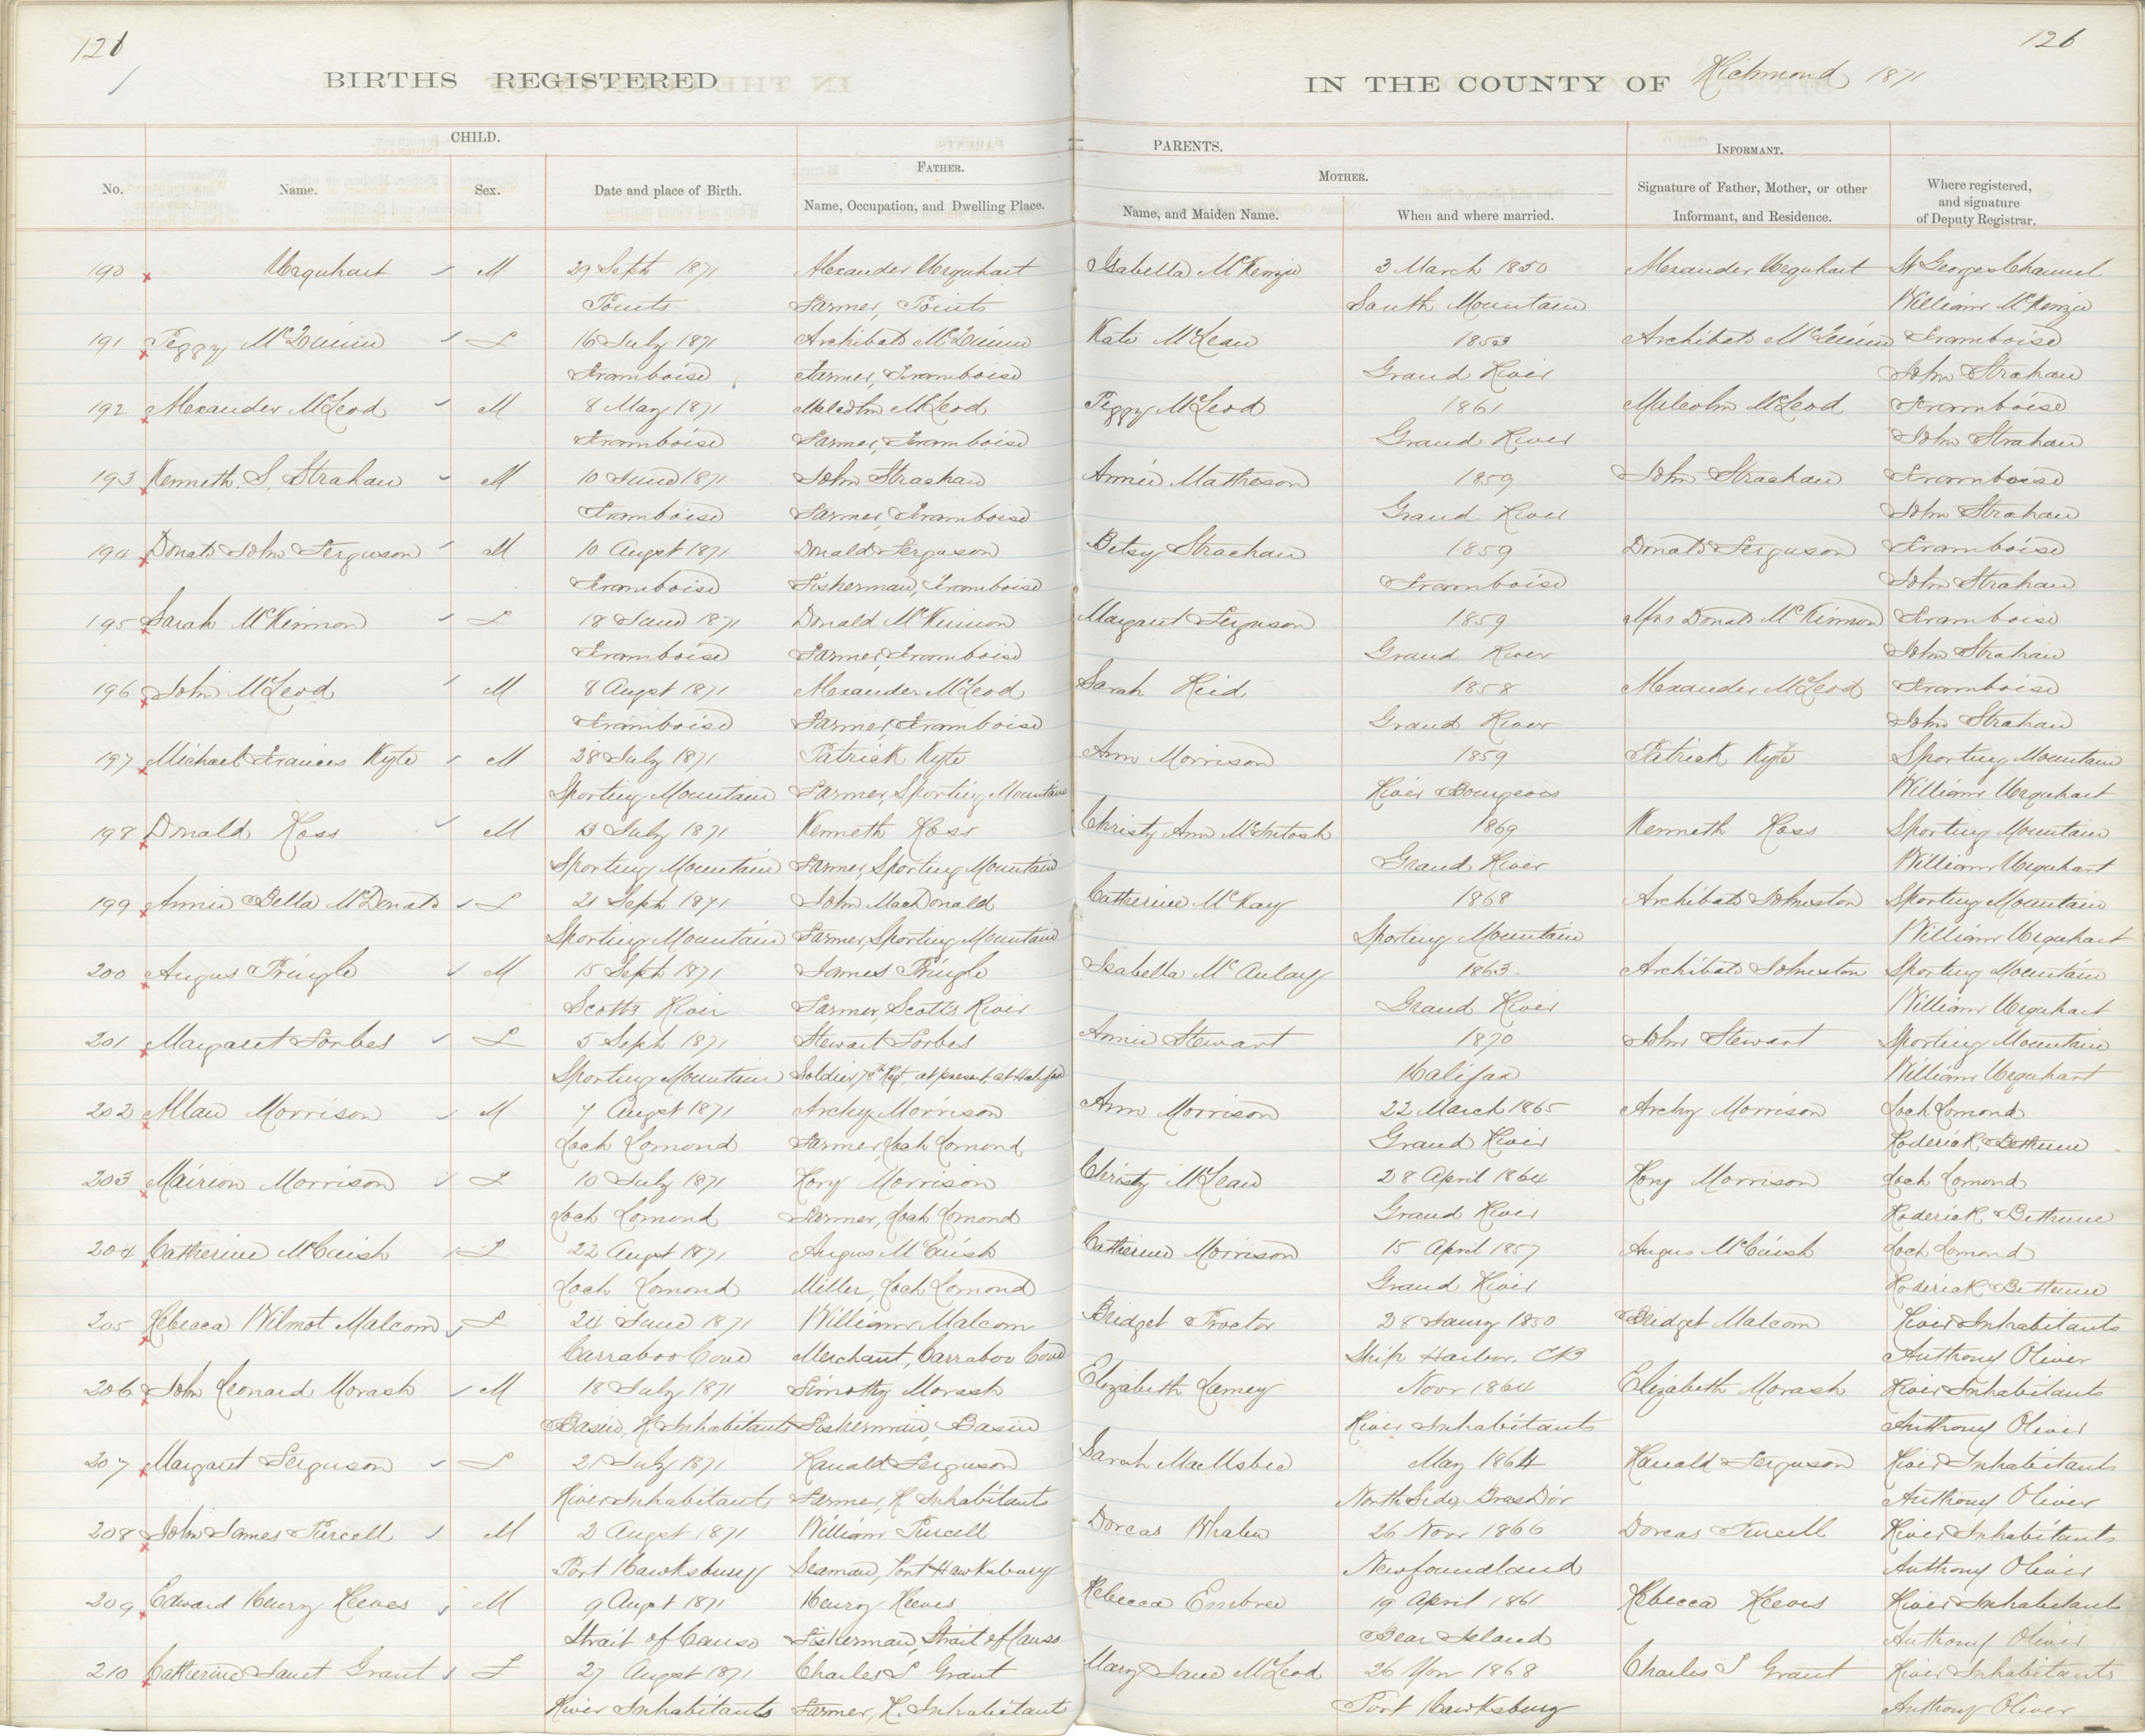 126
126
BIRTHS REGISTERED IN THE COUNTY OF Richmond 1871
CHILD. PARENTS. INFORMANT.
FATHER. MOTHER.
No. Name. Sex. Date and place of Birth. Name, Occupation, and Dwelling Place. Name, and Maiden Name. When and where married. Signature of Father, Mother, or other Informant, and Residence. Where registered, and signature of Deputy Registrar.
190 Urquhart M 29 Sept 1871 Alexander Urquhart Isabella McKenzie 3 March 1850 Alexander Urquhart St Georges Channel
Points Farmer, Points South Mountain William McKenzie
191 Peggy F 16 July 1871 Archibald Kate McLean Archibald Framboise
Framboise Farmer, Framboise Grand River John Strahan
192 Alexander McLeod M 8 May 1871 Malcolm McLeod Peggy McLeod 1861 Malcolm McLeod Framboise
Framboise Farmer, Framboise Grand River John Strahan
193 Kenneth S. Strahan M 10 June 1871 John Strachan Annie Matheson 1859 John Strachan Framboise
Framboise Farmer, Framboise Grand River John Strahan
194 Donald John Ferguson M 10 Augst 1871 Donald Ferguson Betsy Strachan 1859 Donald Ferguson Framboise
Framboise Fisherman, Framboise Framboise John Strahan
195 Sarah McKinnon F 18 June 1871 Donald McKinnon Margaret Ferguson 1859 Mrs Donald McKinnon Framboise
Framboise Farmer, Framboise Grand River John Strahan
196 John McLeod M 8 Augst 1871 Alexander McLeod Sarah Reid 1858 Alexander McLeod Framboise
Framboise Farmer, Framboise Grand River John Strahan
197 Michael Frances Kyte M 28 July 1871 Patrick Kyte Ann Morrison 1859 Patrick Kyte Sporting Mountain
Sporting Mountain Farmer, Sporting Mountain River Bourgeois William Urquhart
198 Donald Ross M 13 July 1871 Kenneth Ross Christy Ann McIntosh 1869 Kenneth Ross Sporting Mountain
Sporting Mountain Farmer, Sporting Mountain Grand River William Urquhart
199 Annie Bella McDonald F 21 Sept 1871 John MacDonald Catherine McKay 1868 Archibald Johnston Sporting Mountain
Sporting Mountain Farmer, Sporting Mountain Sporting Mountain William Urquhart
200 Angus Pringle M 15 Sept 1871 James Pringle Isabella McAulay 1863 Archibald Johnston Sporting Mountain
Scotts River Farmer, Scotts River Grand River William Urquhart
201 Margaret Forbes F 5 Sept 1871 Stewart Forbes Annie Stewart 1870 John Stewart Sporting Mountain
Sporting Mountain Soldier, 78th Regt, at present, at Halifax Halifax William Urquhart
202 Allan Morrison M 7 Augst 1871 Archy Morrison Ann Morrison 22 March 1865 Archy Morrison Loch Lomond
Loch Lomond Farmer, Loch Lomond Grand River Roderick Bethune
203 Mairion Morrison F 10 July 1871 Rory Morrison Christy McLean 28 April 1864 Rory Morrison Loch Lomond
Loch Lomond Farmer, Loch Lomond Grand River Roderick Bethune
204 Catherine McCuish F 22 Augst 1871 Angus McCuish Catherine Morrison 15 April 1857 Angus McCuish Loch Lomond
Loch Lomond Miller, Loch Lomond Grand River Roderick Bethune
205 Rebecca Wilmot Malcom F 24 June 1871 William Malcom Bridget Proctor 28 Jany 1850 Bridget Malcom River Inhabitants
Carraboo Cove Merchant, Carraboo Cove Ship Harbor, CB Anthony Oliver
206 John Leonard Morash M 18 July 1871 Timothy Morash Elizabeth Lamey Novr 1864 Elizabeth Morash River Inhabitants
Basin, R. Inhabitants Fisherman, Basin River Inhabitants Anthony Oliver
207 Margaret Ferguson F 21 July 1871 Ranald Ferguson Sarah May 1864 Ranald Ferguson River Inhabitants
River Inhabitants Farmer, R. Inhabitants North Side Bras D'or Anthony Oliver
208 John James Purcell M 2 Augst 1871 William Purcell Dorcas Whalen 26 Novr 1866 Dorcas Purcell River Inhabitants
Port Hawksbury Seaman, Port Hawksbury Newfoundland Anthony Oliver
209 Edward Henry Reeves M 9 Augst 1871 Henry Reeves Rebecca Embree 19 April 1861 Rebecca Reeves River Inhabitants
Strait of Canso Fisherman, Strait of Canso Bear Island Anthony Oliver
210 Catherine Janet Grant F 27 Augst 1871 Charles S Grant Mary Jane McLeod 26 Novr 1868 Charles S Grant River Inhabitants
River Inhabitants Farmer, R. Inhabitants Port Hawksbury Anthony Oliver